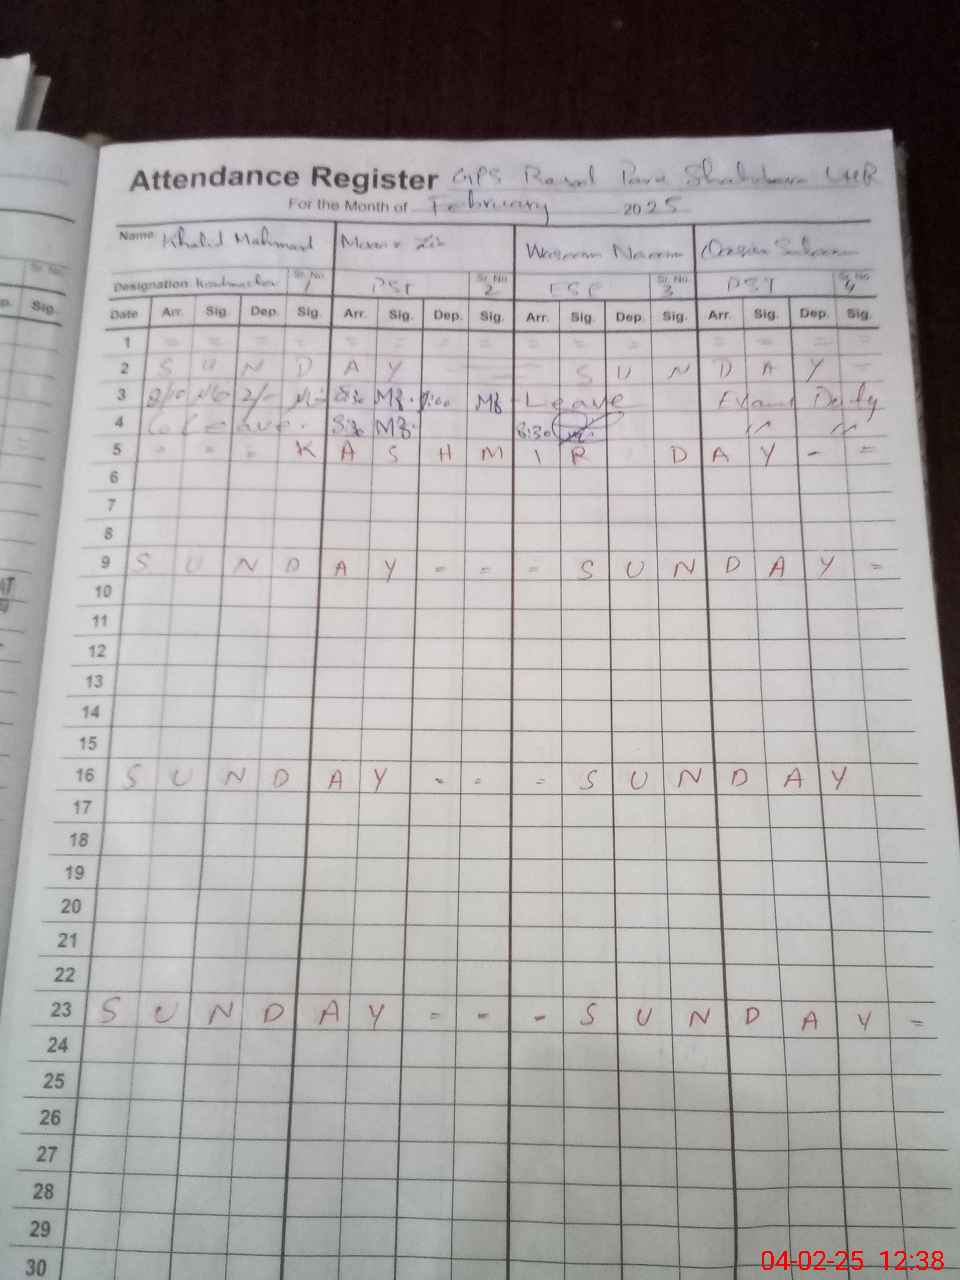 Attendance Register GPS
For the Month of February 2025
Name Khalid Mahmood
Designation Sr. No. 1 PST Sr. No. 2 ESE Sr. No. 3 PST Sr. No. 4
Date Arr. Sig. Dep. Sig. Arr. Sig. Dep. Sig. Arr. Sig. Dep. Sig. Arr. Sig. Dep. Sig.
1 = = = = = = = = = = = = = =
2 S U N D A Y S U N D A Y
3 8:30 MZ. MZ Leave Exam Duty
4 Leave 8:30 MZ. 8:30
5 - - - K A S H M I R D A Y - =
6
7
8
9 S U N D A Y = = - S U N D A Y =
10
11
12
13
14
15
16 S U N D A Y - - - S U N D A Y
17
18
19
20
21
22
23 S U N D A Y = - - S U N D A Y =
24
25
26
27
28
29
30
Sig.
04-02-25 12:38